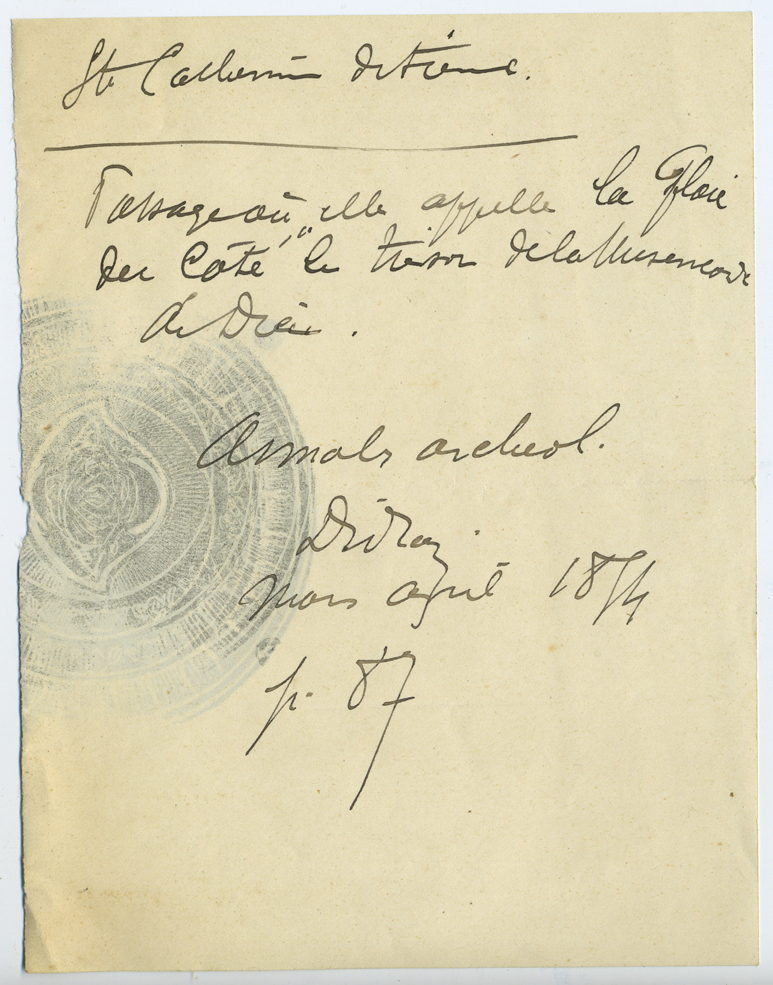 Ste Catherine de Sienne.
Passage où elle appelle la Plaie
du Côté "le trésor de la Misericorde
de Dieu.
Annales archeol.
Didron.
Mars April 1854
p. 87